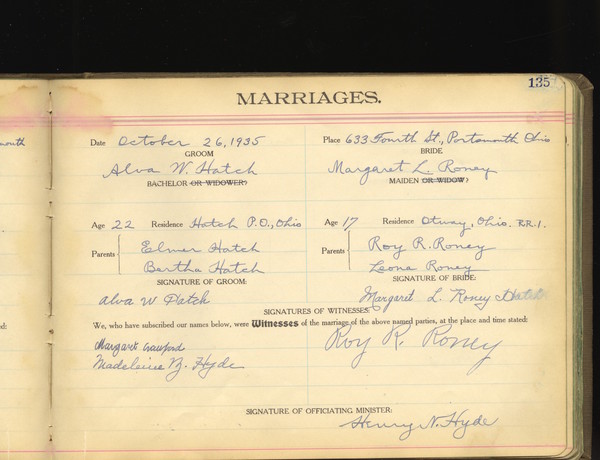 135
MARRIAGES.
Date October 26, 1935 Place 633 Fourth St., Portsmouth Ohio
GROOM BRIDE
Alva W. Hatch Margaret L. Roney
BACHELOR OR WIDOWER? MAIDEN OR WIDOW?
Age 22 Residence Hatch P.O., Ohio Age 17 Residence Otway, Ohio. R.R.1.
Parents Elmer Hatch Parents Roy R. Roney
Bertha Hatch Leona Roney
SIGNATURE OF GROOM: SIGNATURE OF BRIDE:
Alva W Hatch Margaret L. Roney Hatch
SIGNATURES OF WITNESSES.
We, who have subscribed our names below, were Witnesses of the marriage of the above named parties, at the place and time stated:
Margaret Crawford Roy R. Roney
Madeleine Hyde
SIGNATURE OF OFFICIATING MINISTER:
Henry N. Hyde